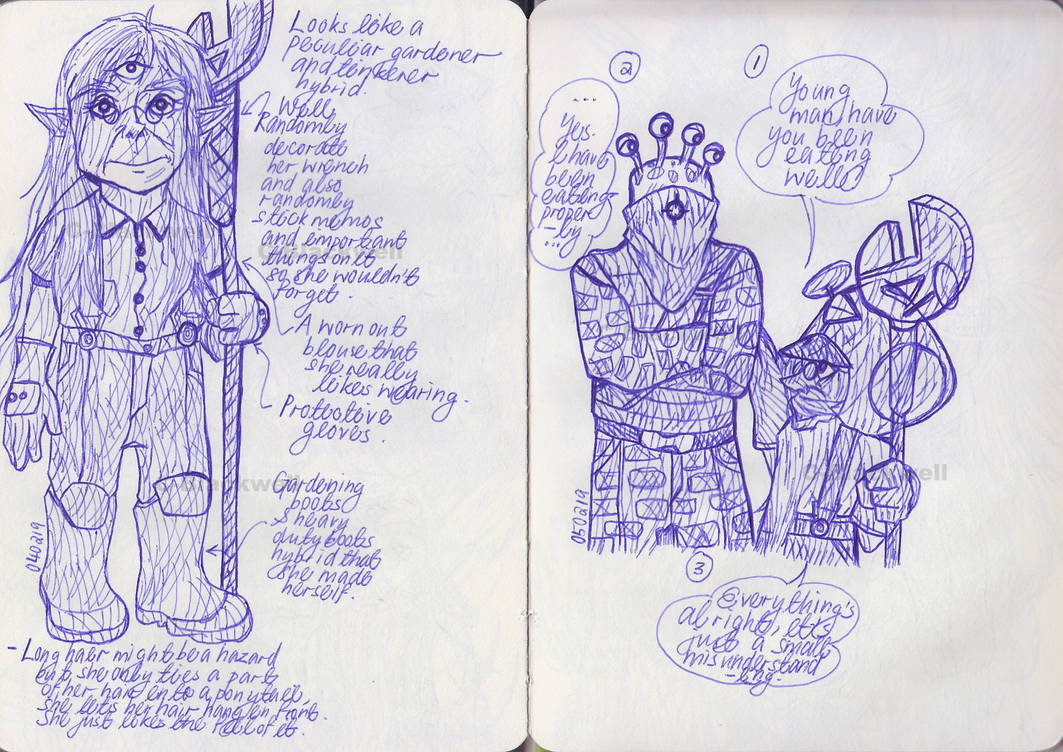 Looks like a
peculiar gardener
and tinkener
hybrid.
Will
Randomby
decorate
her wrench
and also
randomby
stick memos
and important
things on it
so she wouldn't
forget.
A worn out
blouse that
she really
likes wearing.
Protective
gloves.
Gardening
boots
& heavy
duty boots
hybrid that
she made
herself.
040219
- Long hair might be a hazard
but, she only ties a part
of her hair into a ponytail,
she lets her hair hang in front.
She just likes the feel of it.
1
Young
man, have
you been
eating
well?
2
...
Yes.
I have
been
eating
proper
-ly
...
050219
3
Everything's
alright, it's
just a small
misunderstand
-ing.